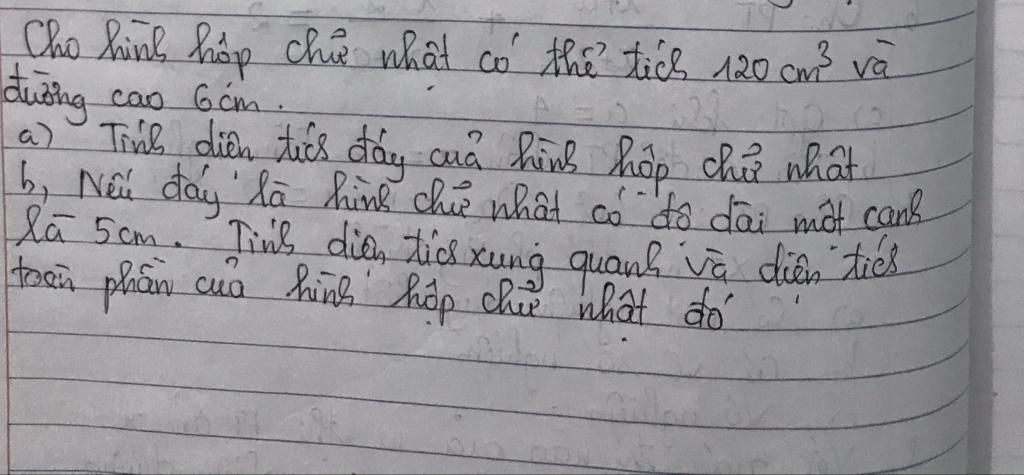 Cho hình hộp chữ nhật có thể tích 120 cm³ và
đường cao 6cm.
a) Tính diện tích đáy của hình hộp chữ nhật
b, Nếu đáy là hình chữ nhật có độ dài một cạnh
là 5cm. Tính diện tích xung quanh và diện tích
toàn phần của hình hộp chữ nhật đó